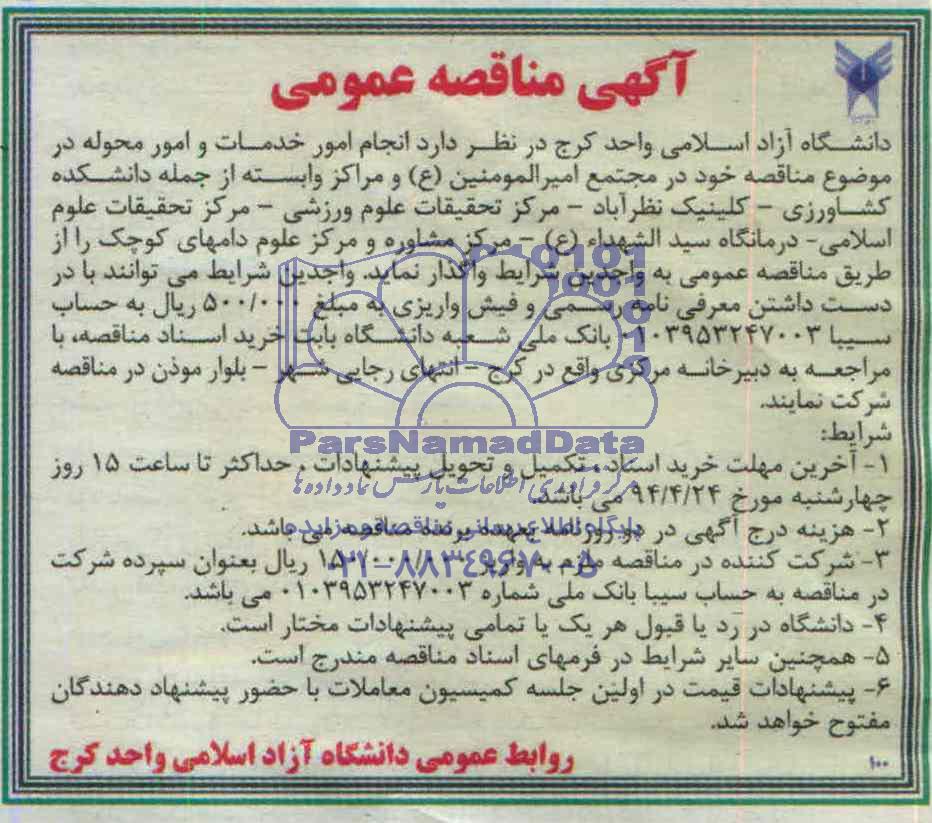 آگهی مناقصه عمومی
دانشگاه آزاد اسلامی واحد کرج در نظر دارد انجام امور خدمات و امور محوله در
موضوع مناقصه خود در مجتمع امیرالمومنین (ع) و مراکز وابسته از جمله دانشکده
کشاورزی – کلینیک نظرآباد – مرکز تحقیقات علوم ورزشی – مرکز تحقیقات علوم
اسلامی- درمانگاه سید الشهداء (ع) – مرکز مشاوره و مرکز علوم دامهای کوچک را از
طریق مناقصه عمومی به واجدین شرایط واگذار نماید. واجدین شرایط می توانند با در
دست داشتن معرفی نامه رسمی و فیش واریزی به مبلغ ۵۰۰/۰۰۰ ریال به حساب
سیبا ۰۱۰۳۹۵۳۲۴۷۰۰۳ بانک ملی شعبه دانشگاه بابت خرید اسناد مناقصه، با
مراجعه به دبیرخانه مرکزی واقع در کرج – انتهای رجایی شهر – بلوار موذن در مناقصه
شرکت نمایند.
ParsNamadData
شرایط:
۱- آخرین مهلت خرید اسناد، تکمیل و تحویل پیشنهادات، حداکثر تا ساعت ۱۵ روز
مرکز فرآوری اطلاعات پارس نماد داده ها
چهارشنبه مورخ ۹۴/۴/۲۴ می باشد.
۲- هزینه درج آگهی در دو روزنامه بعهده برنده مناقصه می باشد.
پایگاه اطلاع رسانی مناقصه و مزایده
۳- شرکت کننده در مناقصه ملزم به واریز ریال بعنوان سپرده شرکت
۰۲۱-۸۸۳۴۹۶۷۰-۵
در مناقصه به حساب سیبا بانک ملی شماره ۰۱۰۳۹۵۳۲۴۷۰۰۳ می باشد.
۴- دانشگاه در رد یا قبول هر یک یا تمامی پیشنهادات مختار است.
۵- همچنین سایر شرایط در فرمهای اسناد مناقصه مندرج است.
۶- پیشنهادات قیمت در اولین جلسه کمیسیون معاملات با حضور پیشنهاد دهندگان
مفتوح خواهد شد.
روابط عمومی دانشگاه آزاد اسلامی واحد کرج
۱۰۰